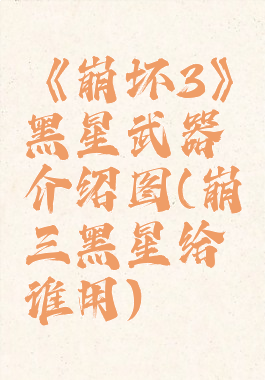 《崩坏3》
黑星武器
介绍图(崩
三黑星给
谁用)